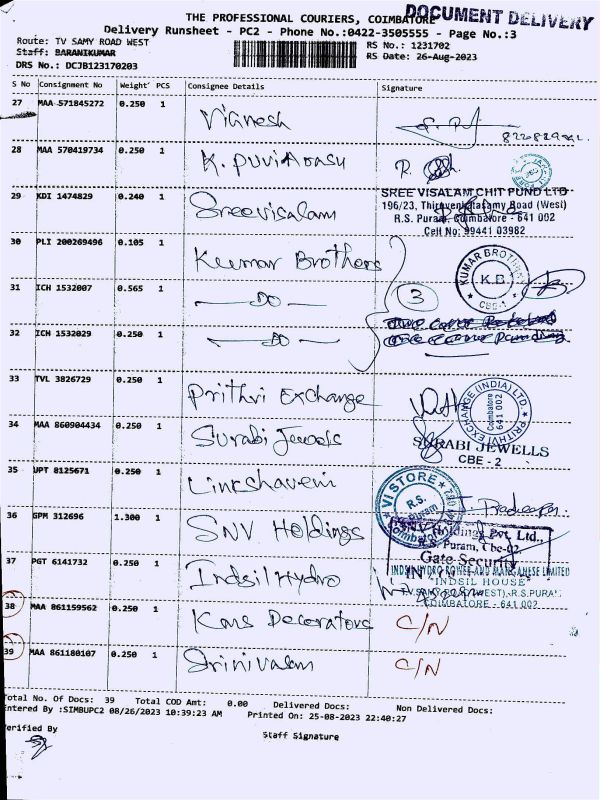 DOCUMENT DELIVERY
THE PROFESSIONAL COURIERS, COIMBATORE
Delivery Runsheet - PC2 - Phone No.:0422-3505555 - Page No.:3
Route: TV SAMY ROAD WEST
RS No.: 1231702
Staff: BARANIKUMAR
RS Date: 26-Aug-2023
DRS No.: DCJB123170203
S No Consignment No Weight PCS Consignee Details Signature
27 MAA 571845272 0.250 1 Vignesh
28 MAA 570419734 0.250 1 K. Puviarasu
29 KDI 1474829 0.240 1 Sreevisalam
SREE VISALAM CHIT FUND LTD
196/23, Thiruvenkatasamy Road (West)
R.S. Puram, Coimbatore - 641 002
Cell No: 99441 03982
30 PLI 200269496 0.105 1 Kumar Brothers
KUMAR BROTHERS
K.B
CBE-1
31 ICH 1532007 0.565 1 DO 3
32 ICH 1532029 0.250 1 DO
33 TVL 3826729 0.250 1 Prithvi Exchange
PRITHVI EXCHANGE (INDIA) LTD.
Coimbatore
641 002
34 MAA 860904434 0.250 1 Surabi Jewels
SURABI JEWELLS
CBE - 2
35 UPT 8125671 0.250 1
VI STORE
R.S. Puram
Coimbatore
36 GPM 312696 1.300 1 SNV Holdings
SNV Holdings Pvt. Ltd.,
R.S. Puram, Cbe-02.
Gate Security
37 PGT 6141732 0.250 1 Indsil Hydro
INDSIL HYDRO POWER AND MANGANESE LIMITED
"INDSIL HOUSE"
T.V. SAMY ROAD (WEST), R.S.PURAM
COIMBATORE - 641 002
38 MAA 861159562 0.250 1 Kans Decorators C/N
39 MAA 861180107 0.250 1 Srinivasan C/N
Total No. Of Docs: 39 Total COD Amt: 0.00 Delivered Docs: Non Delivered Docs:
Entered By :SIMBUPC2 08/26/2023 10:39:23 AM Printed On: 25-08-2023 22:40:27
Verified By
Staff Signature